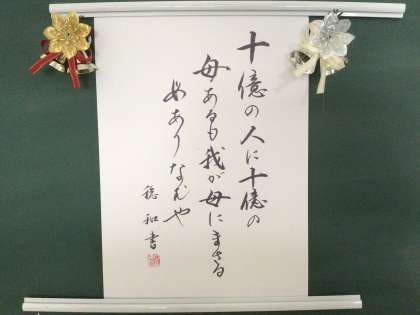 十億の人に十億の
母あるも我が母にまさる
母ありなむや
穂和書